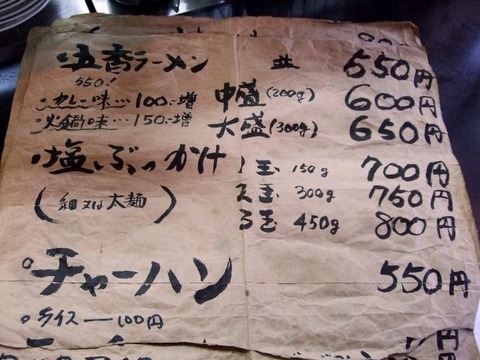 五香ラーメン 並 550円
550円
カレー味…100円増 中盛(200g) 600円
火鍋味…150円増 大盛(300g) 650円
塩ぶっかけ 1玉 150g 700円
2玉 300g 750円
(細又は太麺) 3玉 450g 800円
チャーハン 550円
ライス—100円
円
円